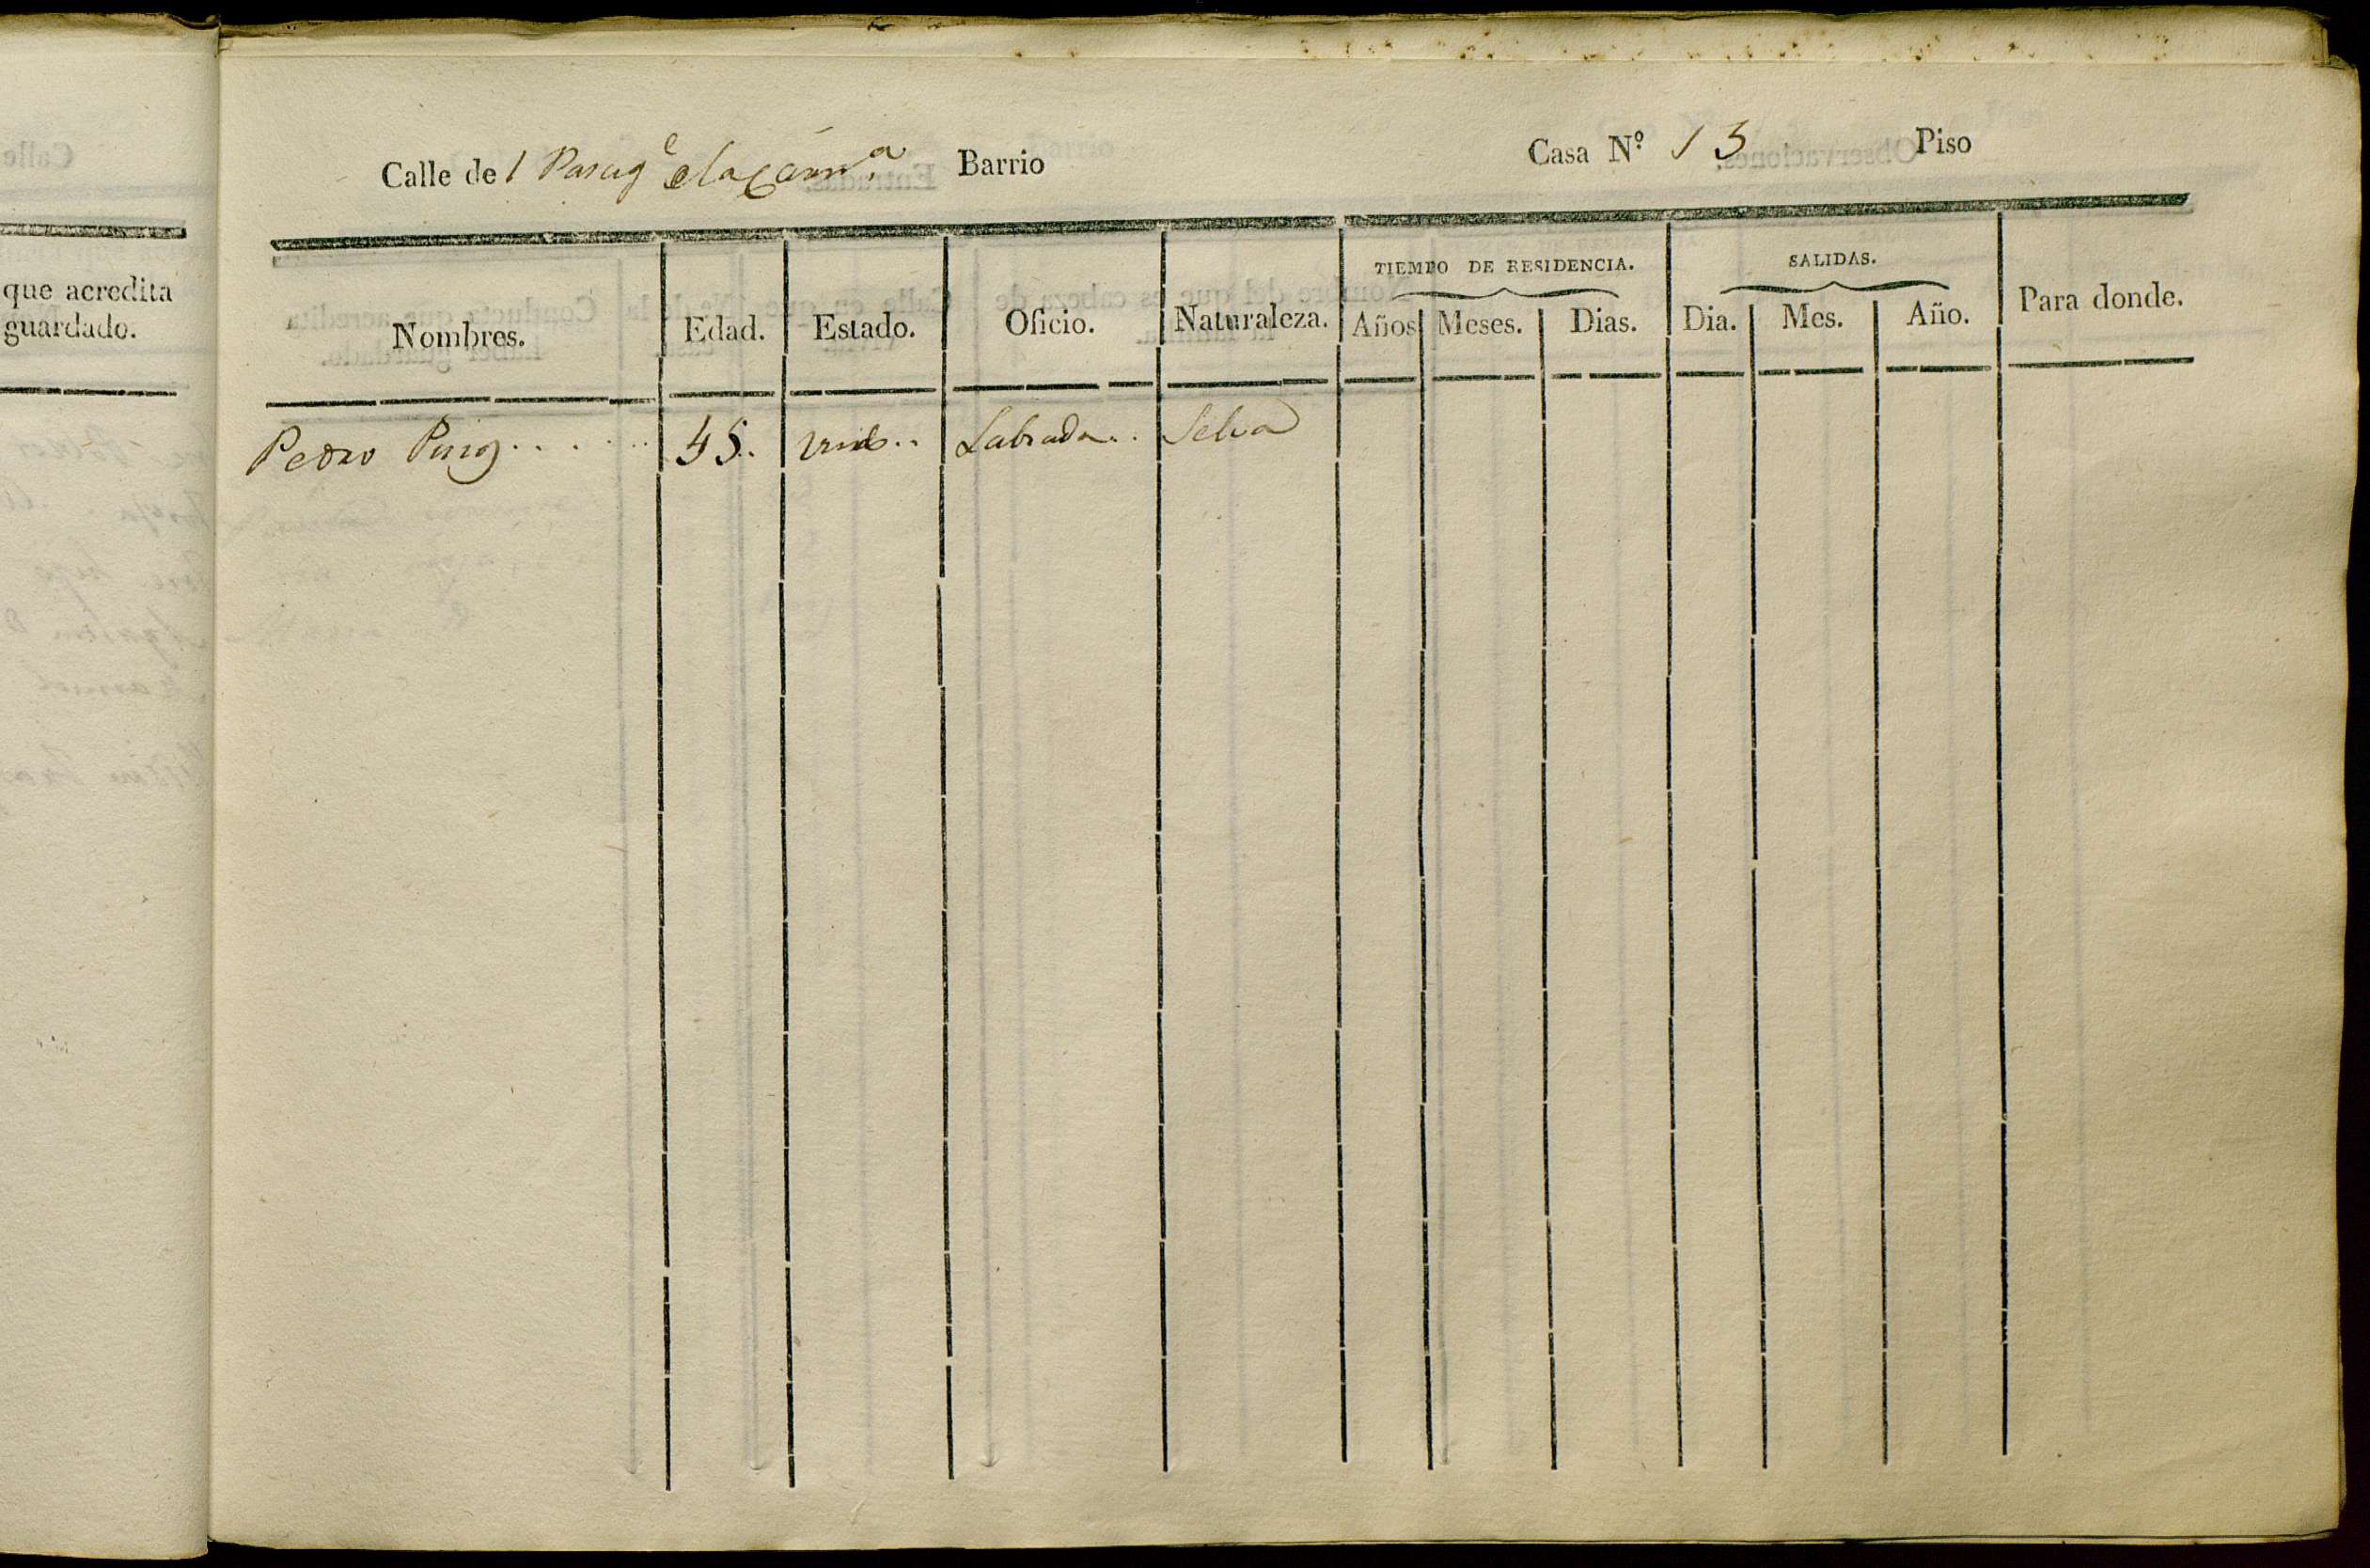 Calle
que acredita
guardado.
Calle de l Pasag^e Barrio Casa N.º 13 Piso
TIEMPO DE RESIDENCIA. SALIDAS.
Nombres. Edad. Estado. Oficio. Naturaleza. Años Meses. Dias. Dia. Mes. Año. Para donde.
Pedro Puig . . . . . . 45. Viud.. Labrador.. Selva